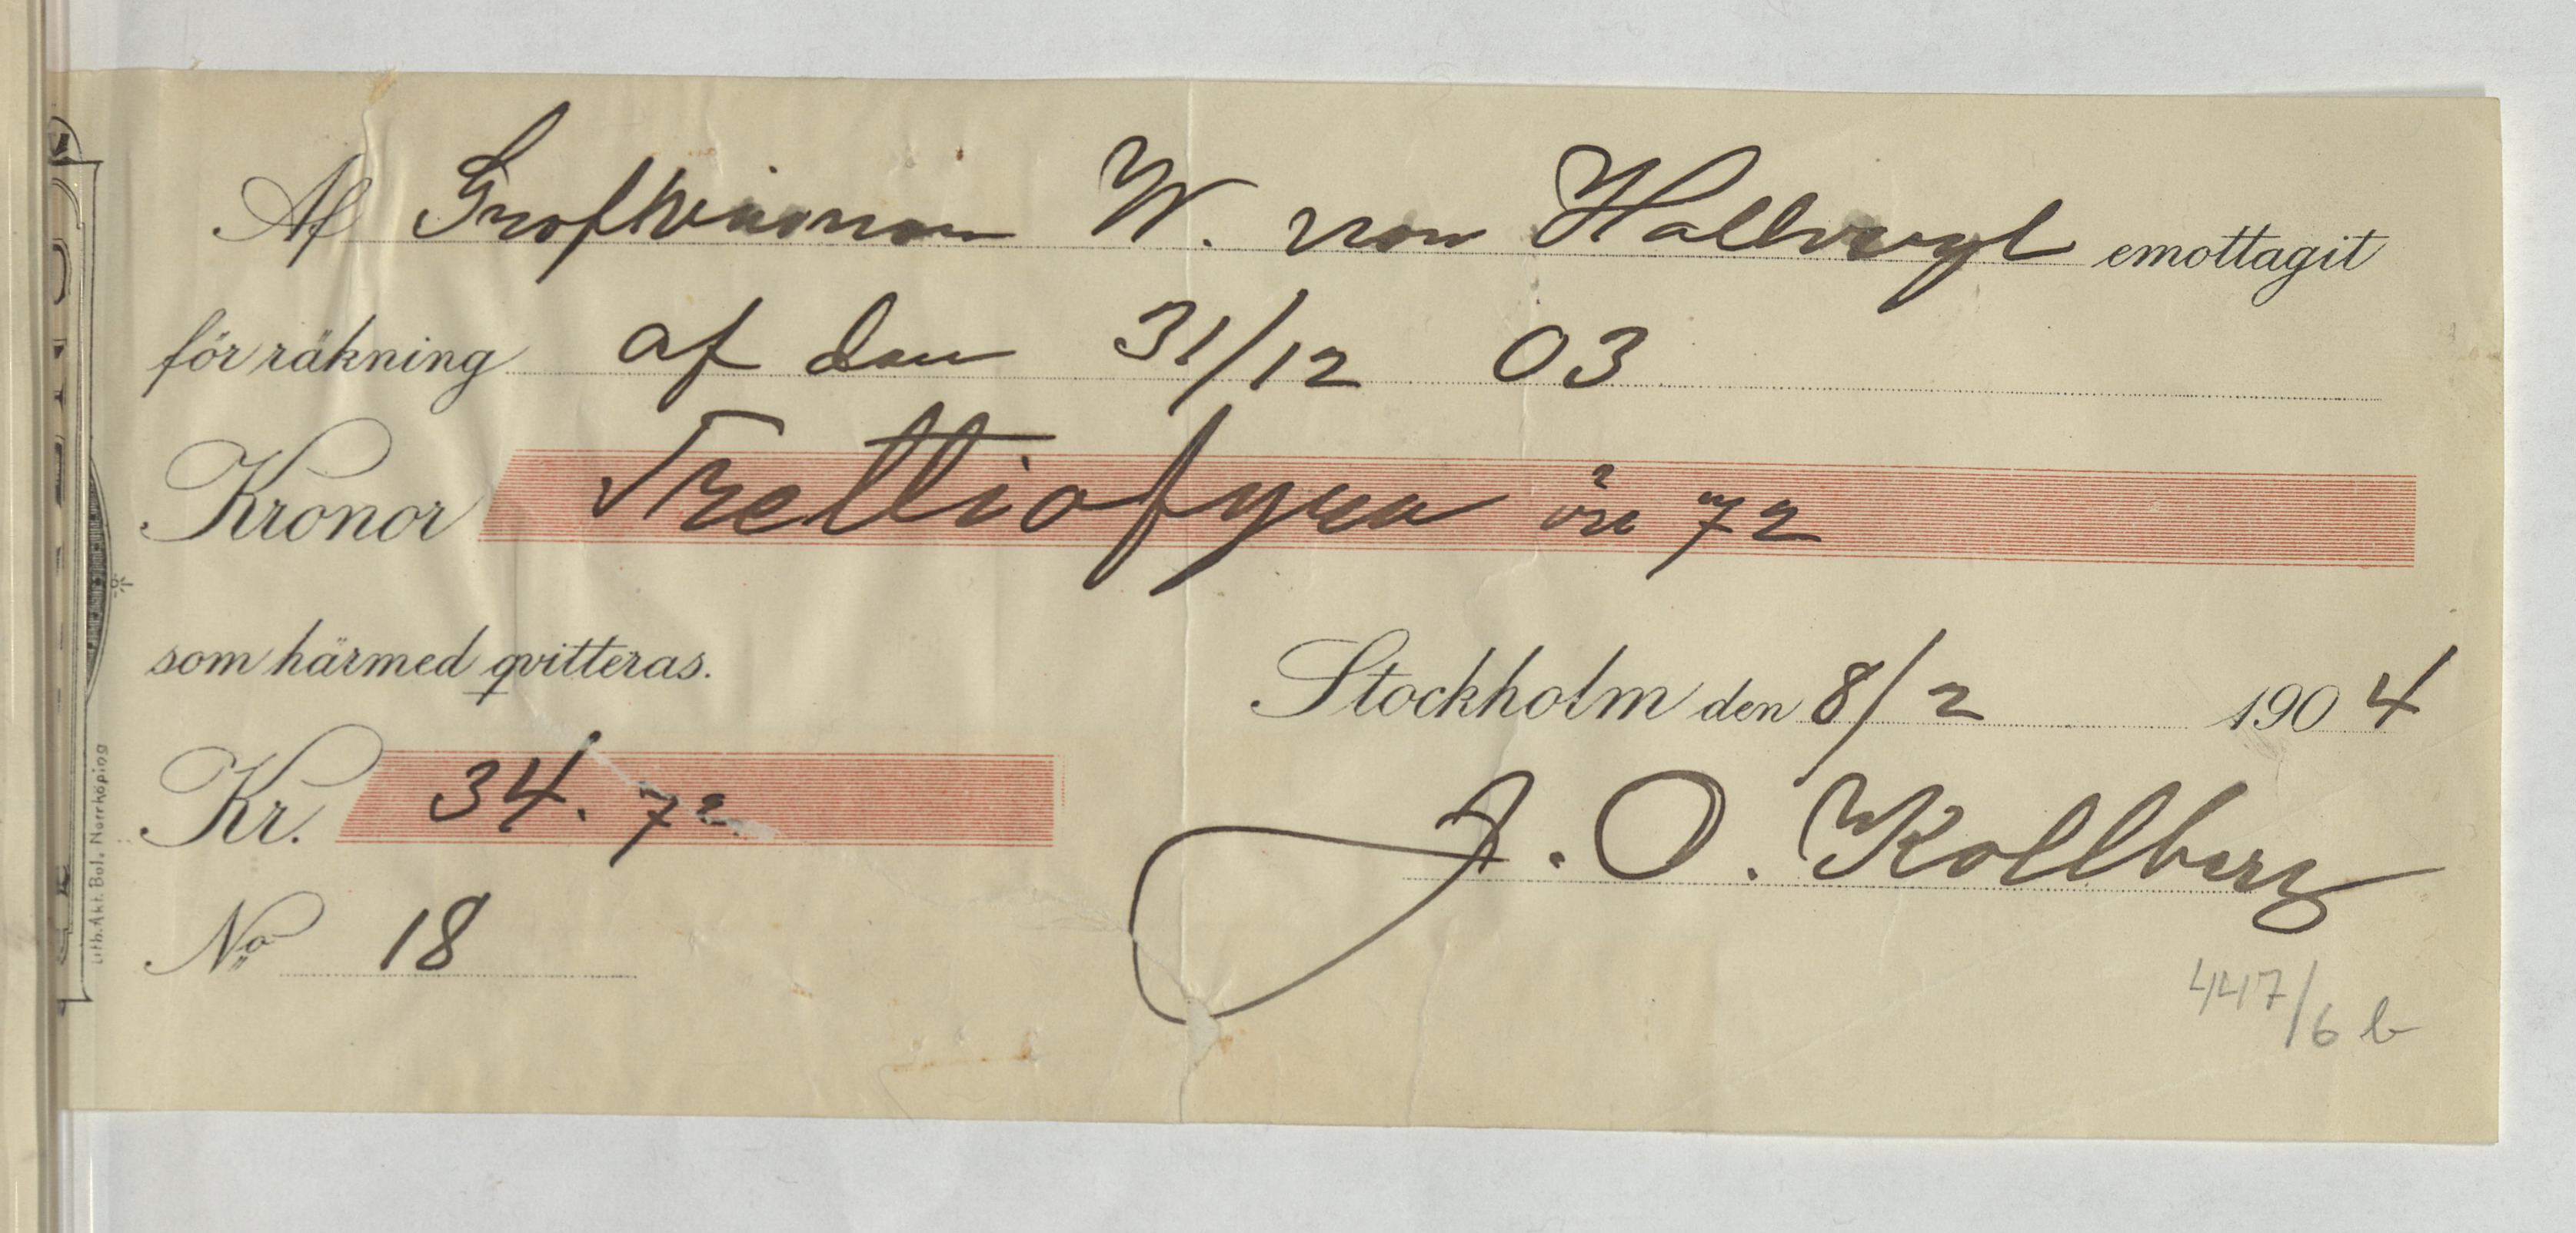 Af Grefvinnan W. von Hallwyl emottagit
för räkning af den 31/12 03
Kronor Trettiofyra öre 72
som härmed qvitteras.
Stockholm den 8/2 1904
Kr. 34.72
J. O. Kollberg
No 18
447/6 b
Lith. Akt. Bol. Norrköping